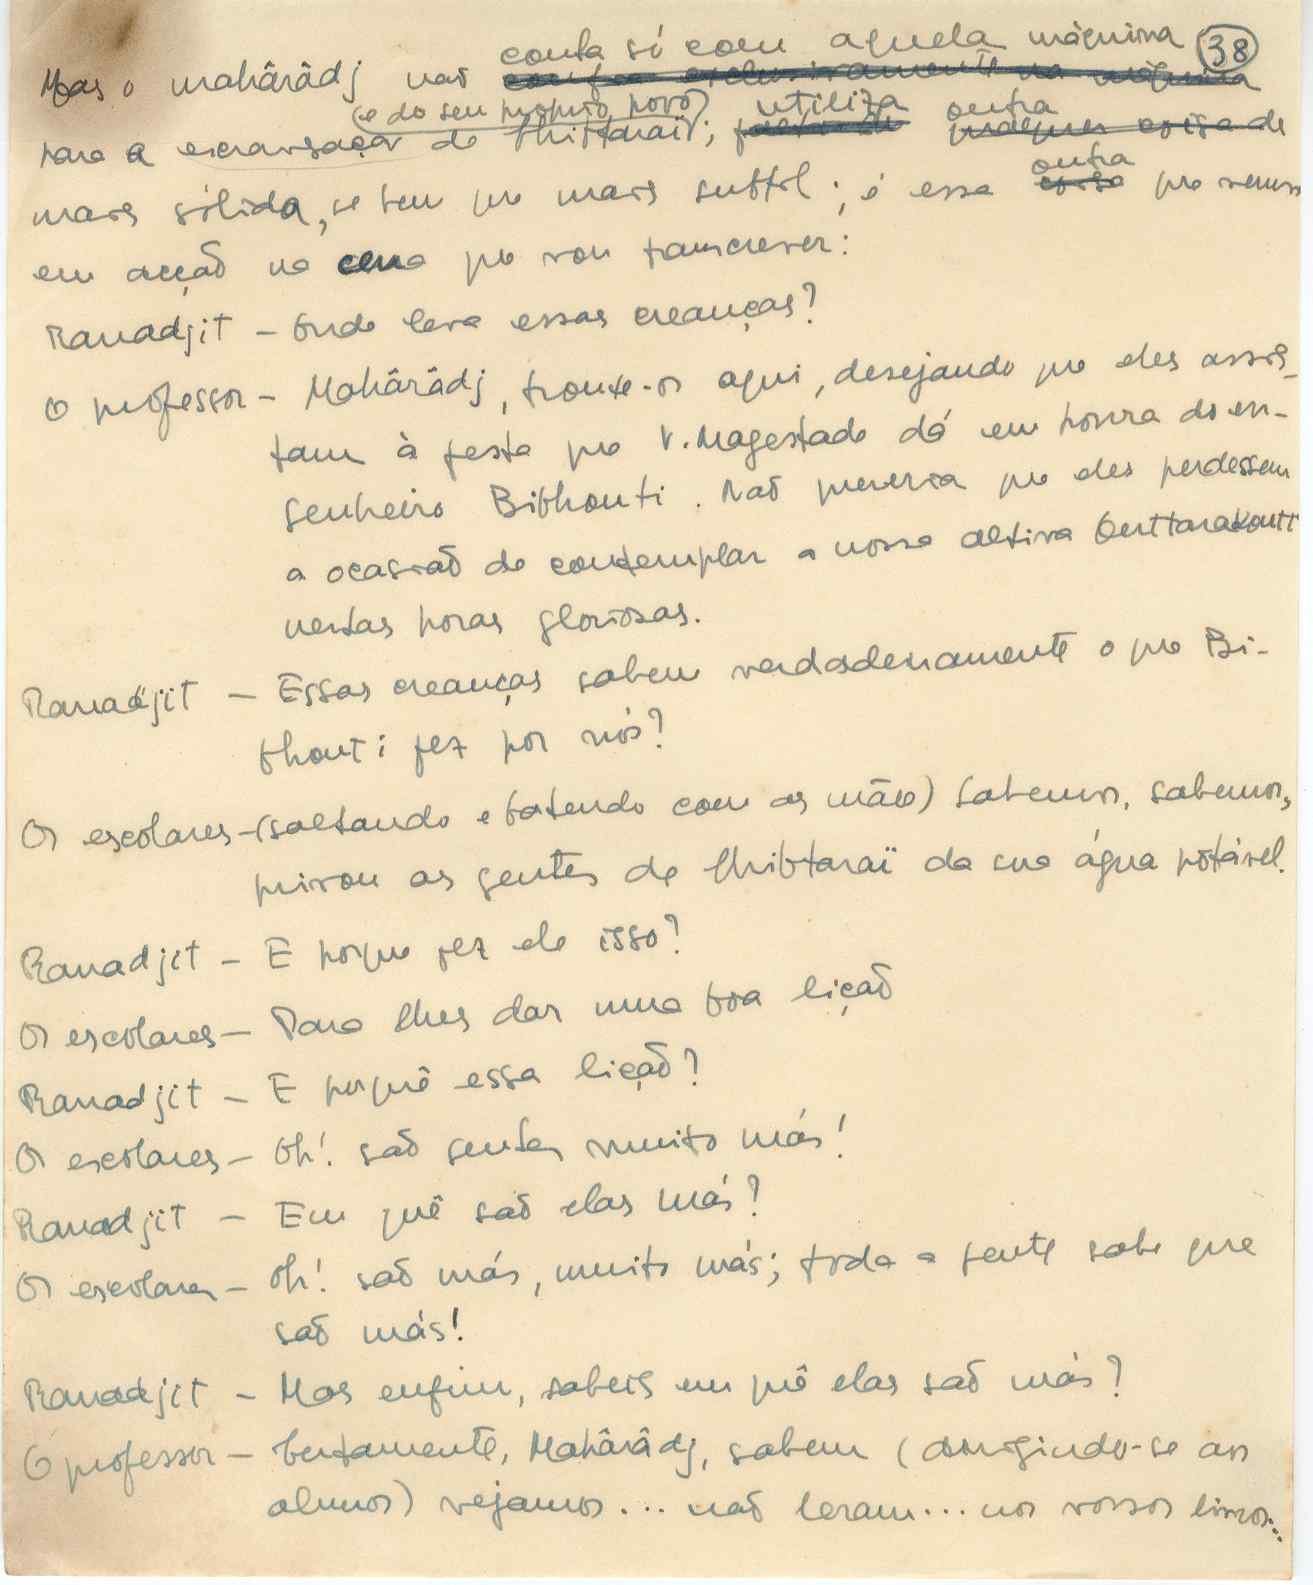 conta só com aquela máquina (38)
Mas o mahârâdj não confia exclusivamente na máquina
(e do seu próprio povo) utiliza outra
para a escravização de Chibtaraï; de
outra
mais sólida, se bem que mais subtil; é essa coisa que vemos
em acção na cena que vou transcrever:
Ranadjit – Onde leva essas creanças?
O professor – Mahârâdj, trouxe-os aqui, desejando que eles assis-
tam à festa que V. Magestade dá em honra do en-
genheiro Bibhouti. Não queria que eles perdessem
a ocasião de contemplar a nossa altiva Outtarakout
nestas horas gloriosas.
Ranadjit – Essas creanças sabem verdadeiramente o que Bi-
bhouti fez por nós?
Os escolares – (saltando e batendo com as mãos) Sabemos, sabemos,
privou as gentes de Chibtaraï da sua água potável.
Ranadjit – E porque fez ele isso?
Os escolares – Para lhes dar uma boa lição
Ranadjit – E porquê essa lição?
Os escolares – Oh! são gentes muito más!
Ranadjit – Em quê são elas más?
Os escolares – Oh! são más, muito más; toda a gente sabe que
são más!
Ranadjit – Mas enfim, sabeis em quê elas são más?
O professor – Certamente, Mahârâdj, sabem (dirigindo-se aos
alunos) vejamos... não leram... nos vossos livros...